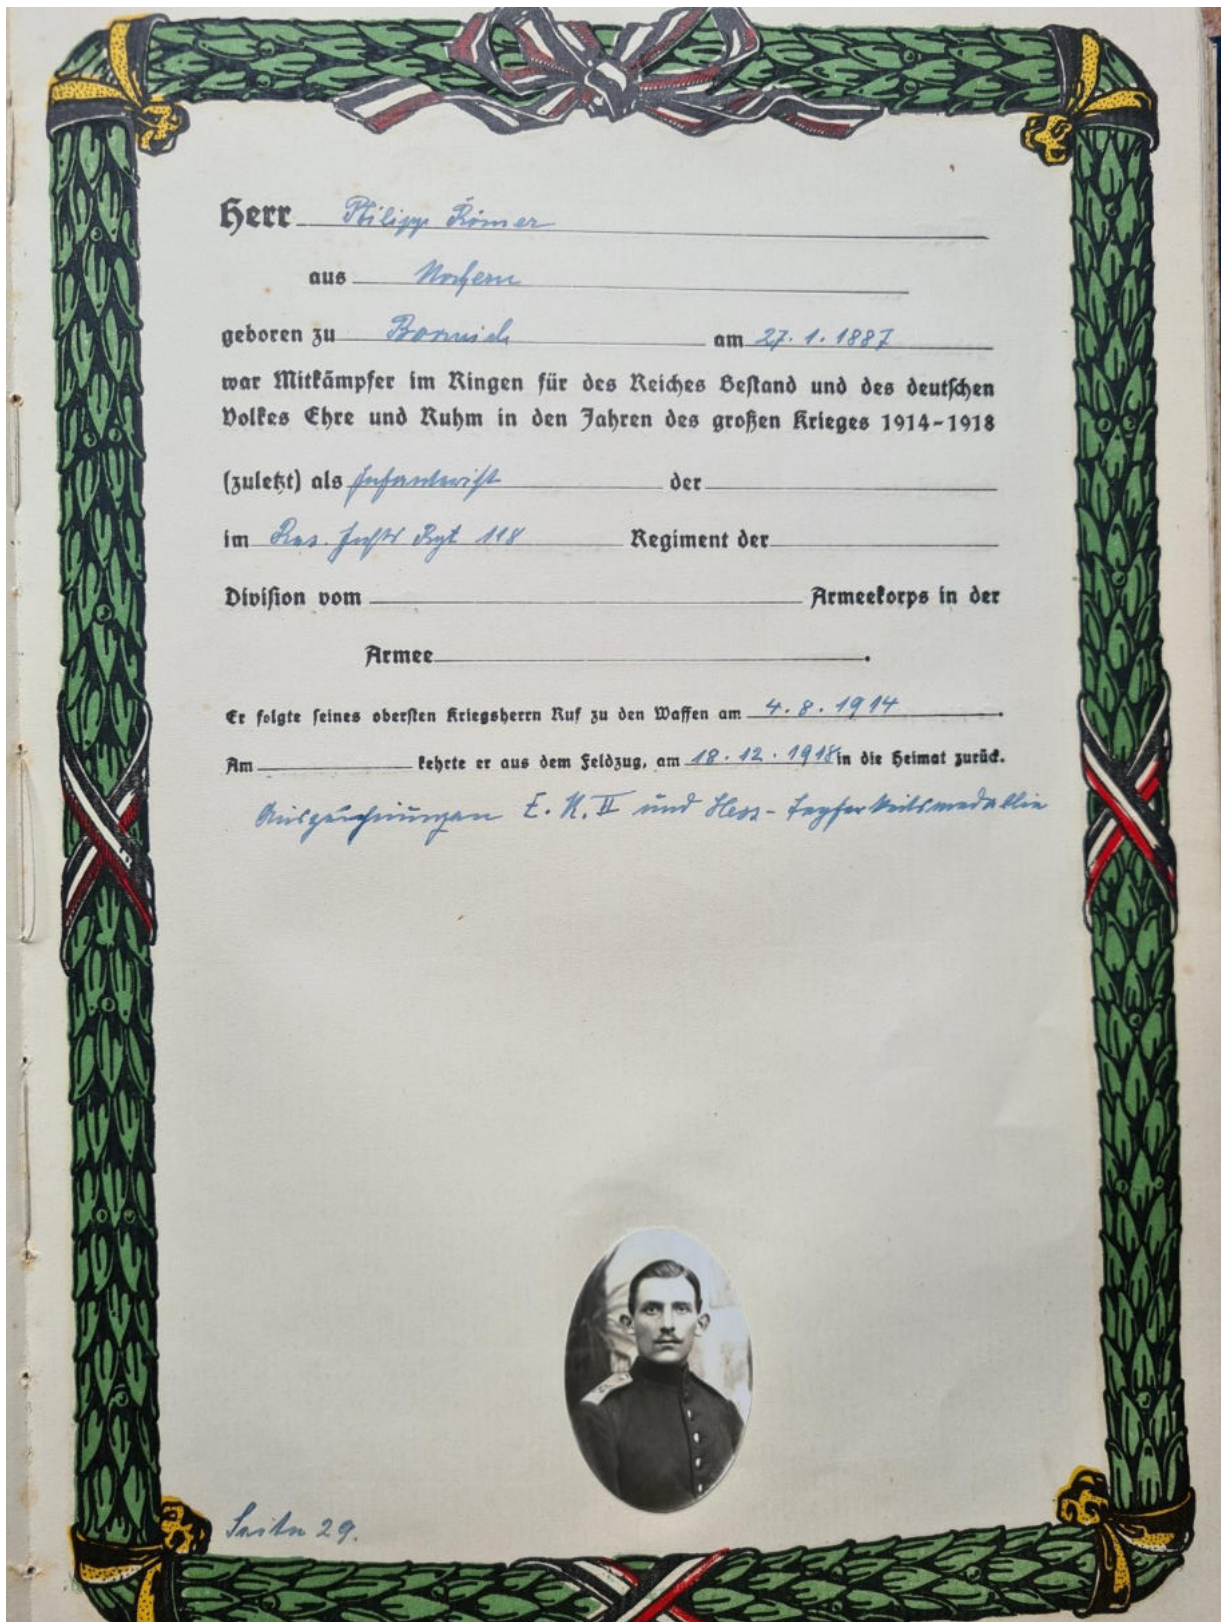 Herr Philipp Römer
aus Nochern
geboren zu Bornich am 27. 1. 1887
war Mitkämpfer im Ringen für des Reiches Bestand und des deutschen
Volkes Ehre und Ruhm in den Jahren des großen Krieges 1914-1918
(zuletzt) als Infanterist der
im Res. Inftr Rgt 118 Regiment der
Division vom Armeekorps in der
Armee.
Er folgte seines obersten Kriegsherrn Ruf zu den Waffen am 4. 8. 1914.
Am kehrte er aus dem Feldzug, am 18. 12. 1918 in die Heimat zurück.
Auszeichnungen E. K. II und Hess-Tapferkeitsmedallie
Seite 29.